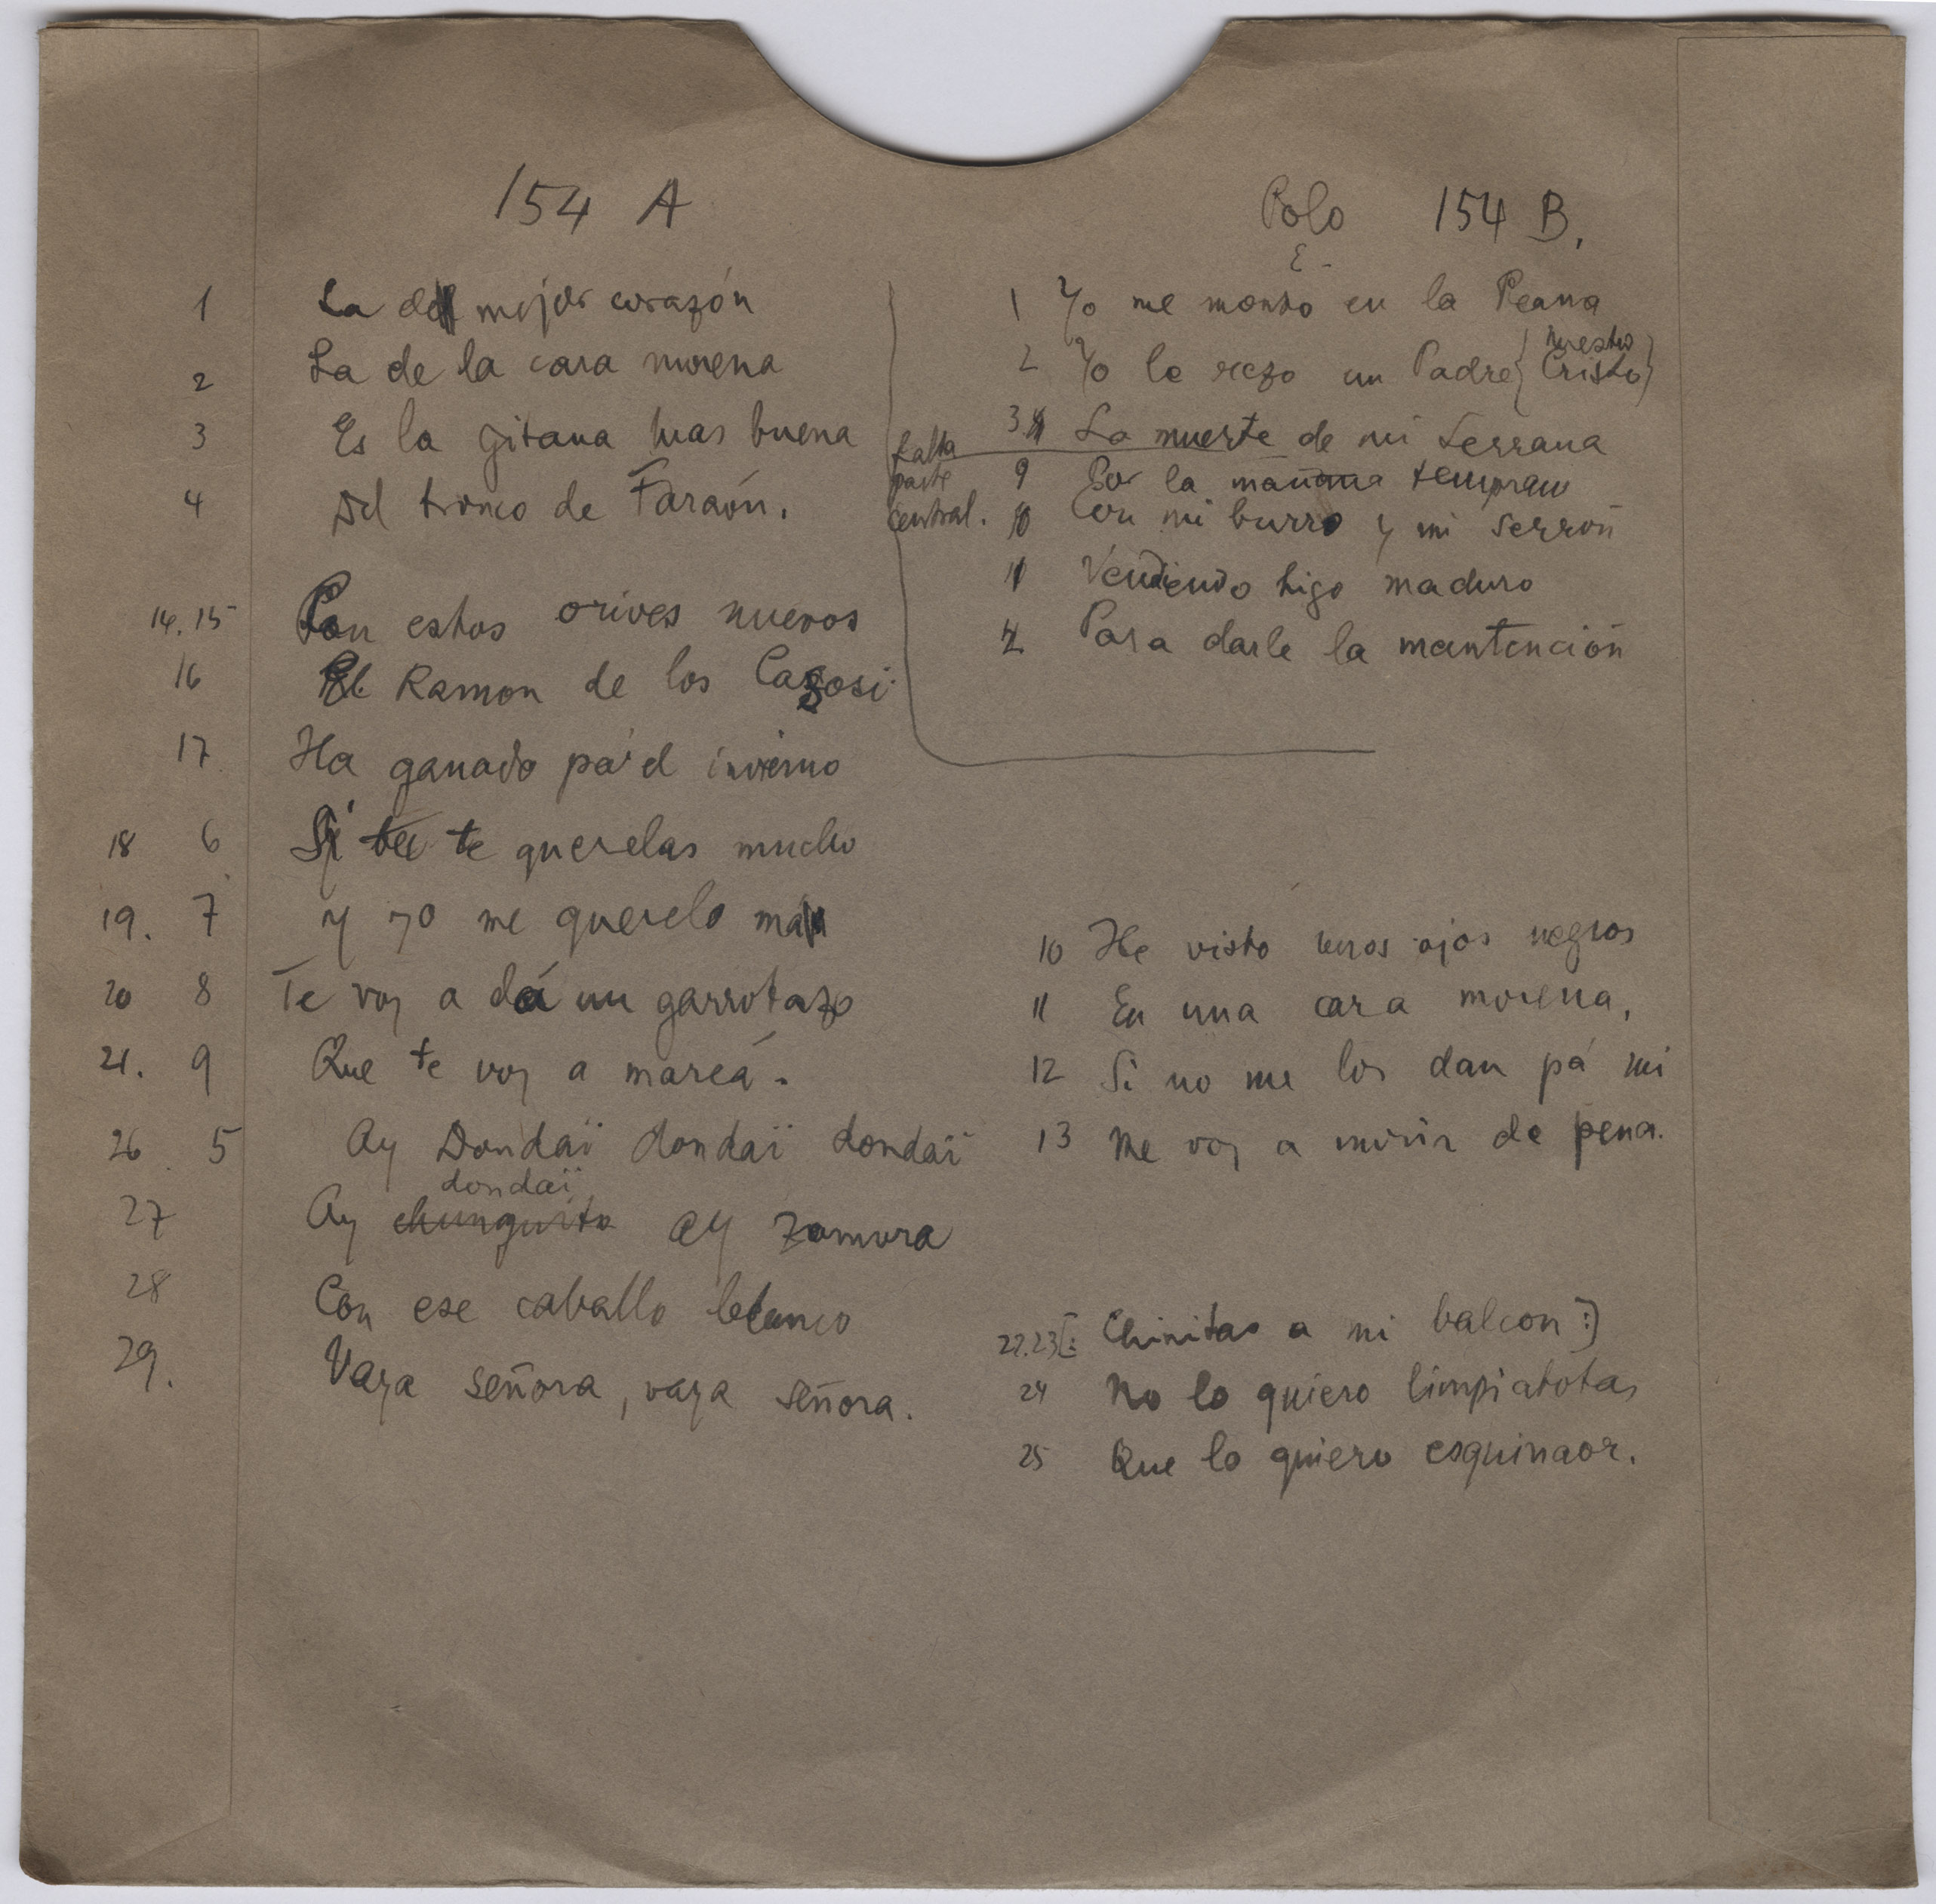 154 A
1 La de mejor corazón
2 La de la cara morena
3 Es la gitana mas buena
4 Del tronco de Faraón.
14.15 Con estos orives nuevos
16 El Ramon de los Casosi
17 Ha ganado pa'el invierno
18 6 Si te querelas mucho
19. 7 y yo me querelo má
20 8 Te voy a dá un garrotazo
21. 9 Que te voy a mareá.
26. 5 Ay Dondaï dondaï dondaï
dondaï
27 Ay chunguito ay Zamora
28 Con ese caballo blanco
29. Vaya señora, vaya señora.
Polo 154 B.
1 Yo me monto en la Peana
2 Yo le rezo un Padre { nuestro Cristo }
3 La muerte de mi serrana
falta parte central.
9 Por la mañana temprano
10 Con mi burro y mi serrón
11 Vendiendo higo maduro
12 Para darle la mantención
10 He visto unos ojos negros
11 En una cara morena,
12 Si no me los dan pá mi
13 Me voy a morir de pena.
22.23 [: Chinitas a mi balcon :]
24 No lo quiero limpiatotas
25 Que lo quiero esquinaor.